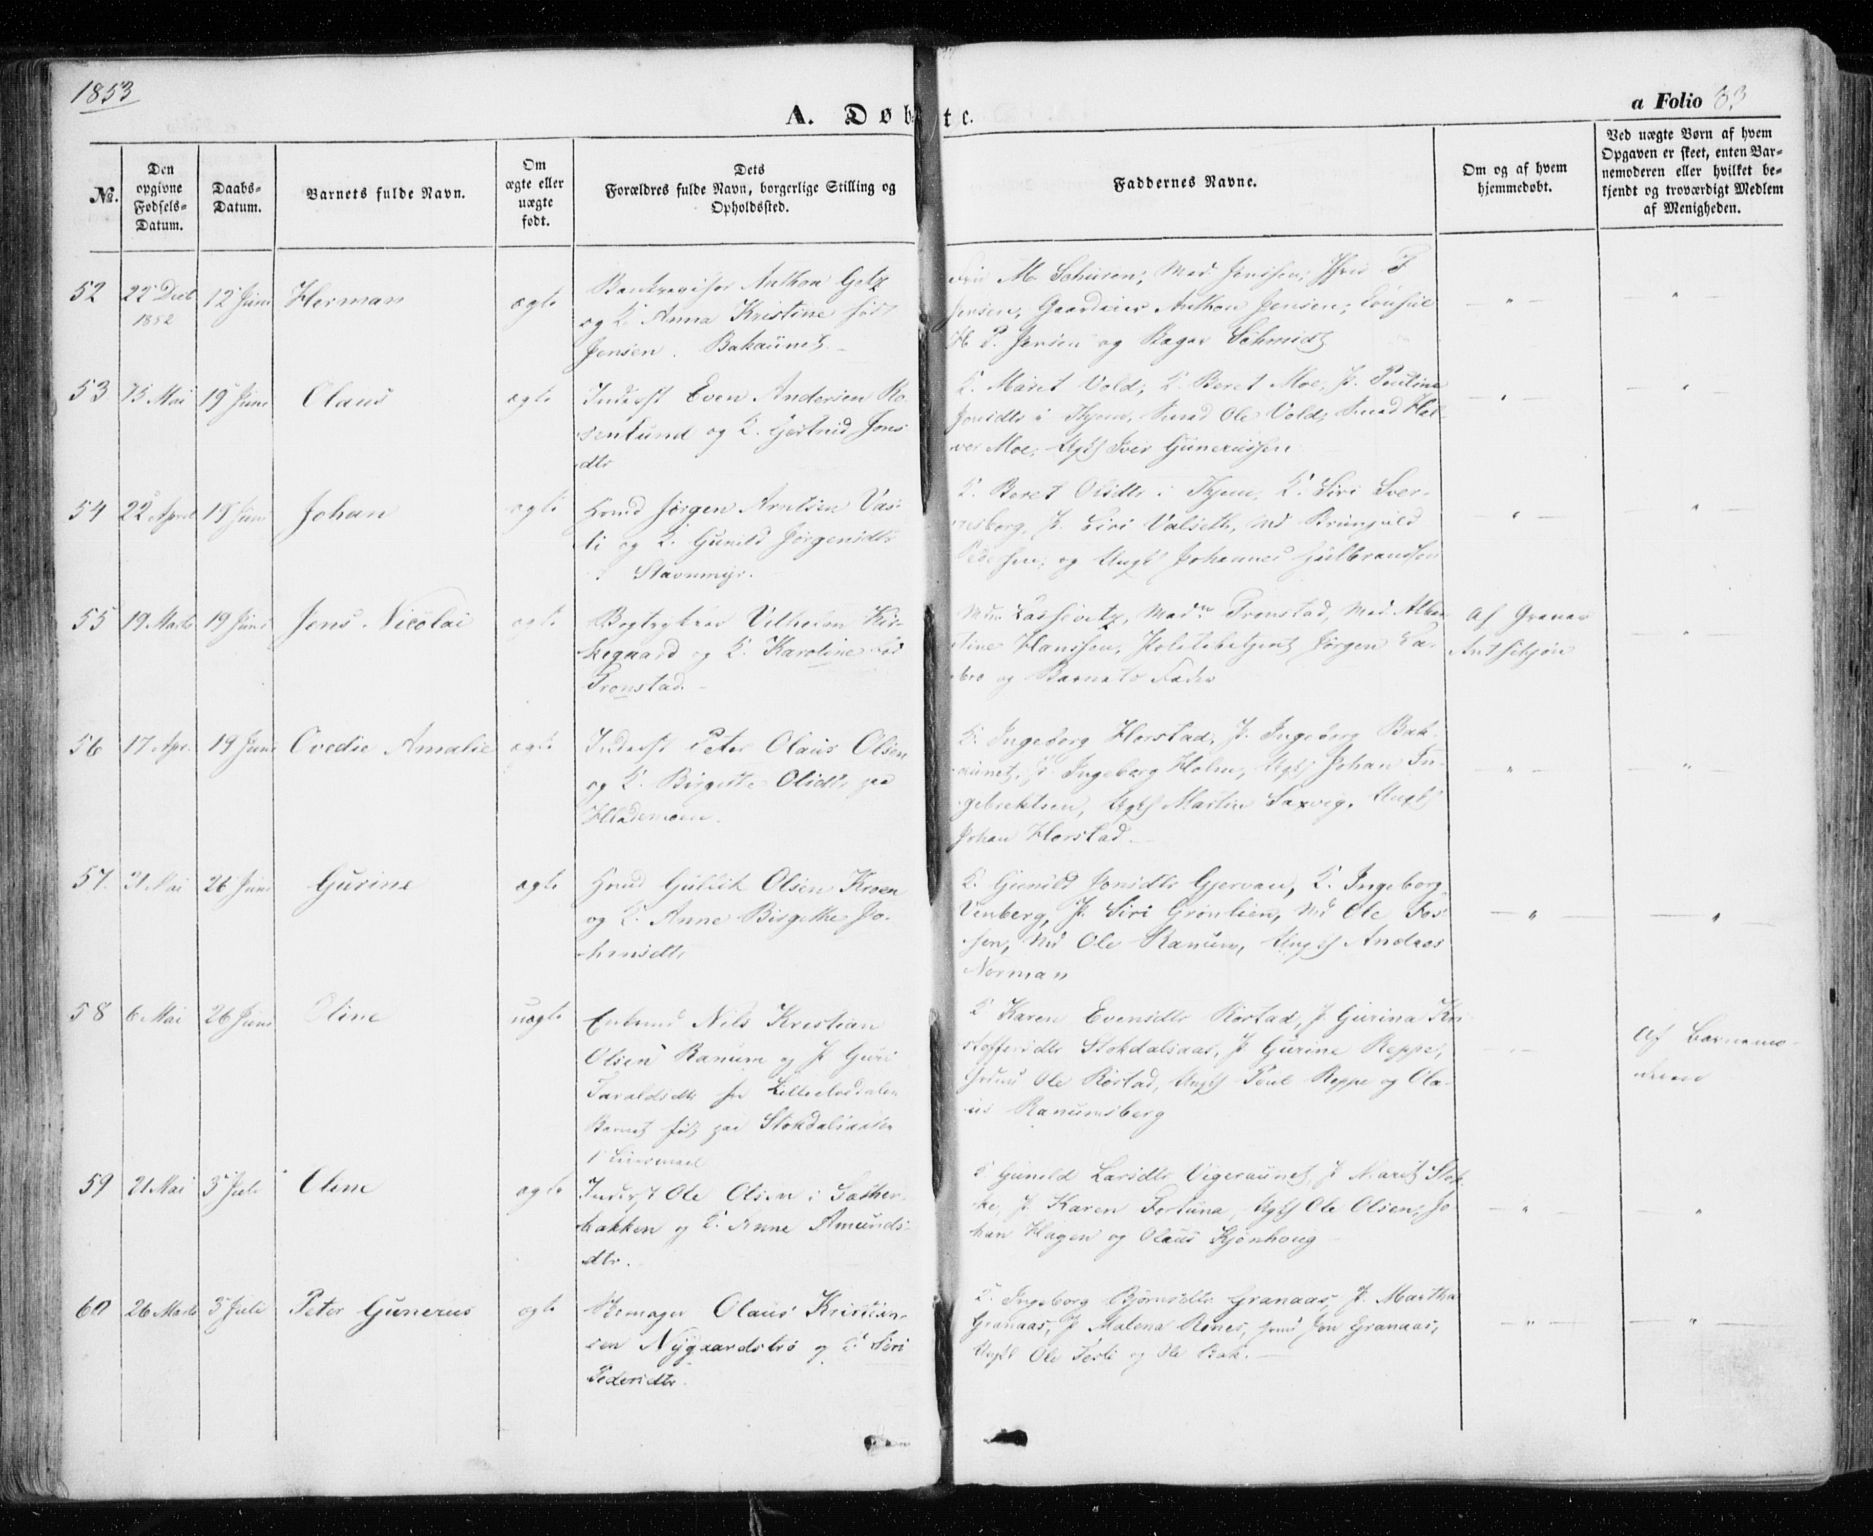 1853
A. Døbte.
a Folio 33
No.
Den opgivne Fødsels-Datum.
Daabs-Datum.
Barnets fulde Navn.
Om ægte eller uægte født.
Dets Forældres fulde Navn, borgerlige Stilling og Opholdssted.
Faddernes Navne.
Om og af hvem hjemmedøbt.
Ved uægte Børn af hvem Opgaven er skeet, enten Barnemoderen eller hvilket bekjendt og troværdigt Medlem af Menigheden.
52 22 Decb 1852 12 Juni Herman ægte
Anthon Getz
og K. Anna Kristine født
Jensen. Bakaunet.
M. Schiesen; Mad Jensen;
Jensen, Gaardeier Anthon Jensen; Consul
H. P. Jensen og Schmidt
53 15 Mai 19 Juni Olaus ægte
Inderst Even Andersen Ro-
senlund og K. Gjertrud Jons-
dtr
K. Marit Vold; K. Beret Moe; P. Pauline
Jonsdtr i Thjem, Smed Ole Vold; Smed Hal-
vor Moe; Ungk Iver Gunerussen
54 22 April 18 Juni Johan ægte
Hmd Jørgen Arntsen Vas-
li og K. Gunild Jørgensdtr
i Stavnmyr.
K. Beret Olsdtr i Thjem, K. Siri Sver-
resborg, P. Siri Valseth, Md Brynjuld
Pedersen; og Ungk Johannes Gulbrandsen
55 19 Marts 19 Juni Jens Nicolai ægte
Bogtrykker Vilhelm Kir-
kegaard og K. Karoline fød
Tronstad.
Mad. Tronstad, Mad Alber-
tine Hanssen, Politibetjent Jørgen
og Barnets Fader
Af
56 17 Apr. 19 Juni Ovedie Amalie ægte
Inderst Peter Olaus Olsen
og K. Birgitte Olsdtr paa
Hlademoen.
K. Ingeborg Horstad, P. Ingeborg Bak-
aunet, P. Ingeborg Holm, Ungk Johan In-
gebrektsen, Ungk Martin Saxvig, Ungk
Johan Horstad
57. 31 Mai 26 Juni Gurine ægte
Hmd Gullik Olsen Kroen
og K. Anne Birgithe Jo-
hnsdtr
K. Gunild Jonsdtr Gjervan, K. Ingeborg
Venberg, P. Siri Grønlien, Md Ole Fos-
sen, Md Ole Ranum, Ungk Andreas
Norman
58 6 Mai 26 Juni Oline uægte
Enkmd Nils Kristian
Olsen Ranum og P. Guri
Taraldsdtr fra
Barnet født paa Stokdalsaasen
1 Leiermaal
K Karen Evensdtr Rostad, P. Gurina Kri-
stoffersdtr Stokdalsaas, P. Gurine Reppe,
Hmd Ole Rostad, Ungk Poul Reppe og Ola-
us Ranumsberg
Af Barnemo-
deren
59 21 Mai 3 Juli Olene ægte
Inderst Ole Olsen i Sæther-
bakken og K. Anne Amunds-
dtr.
K Gunild Larsdtr Vigeraunet, P Marit Stok-
ke, P Karen Fortuna, Ungk Ole Olsen, Jo-
han Hagen og Olaus Kjønhoug
60 26 Marts 3 Juli Peter Gunerus ægte
Skomager Olaus Kristian-
sen Nygaardsbrø og K. Siri
Pedersdtr.
K. Ingeborg Bjørnsdtr Granaas, P. Martha
Granaas, P Malena Rønes, Hmd Jon Granaas,
Ungk Ole Tesli og Ole Bak.